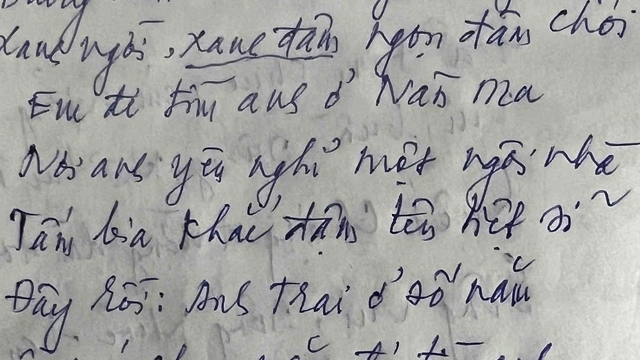 Xanh ngời, xanh đẫm ngọn đâm chồi
Em đi tìm anh ở Nấm ma
Nơi anh yên nghỉ một ngôi nhà
Tấm bia khắc đậm tên liệt sĩ
Đây rồi: Anh trai ở số năm